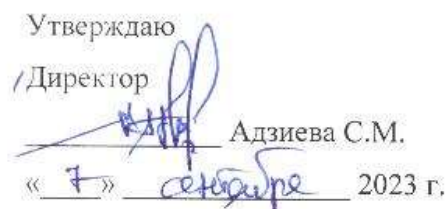 Утверждаю
Директор
Адзиева С.М.
« 7 » сентября 2023 г.